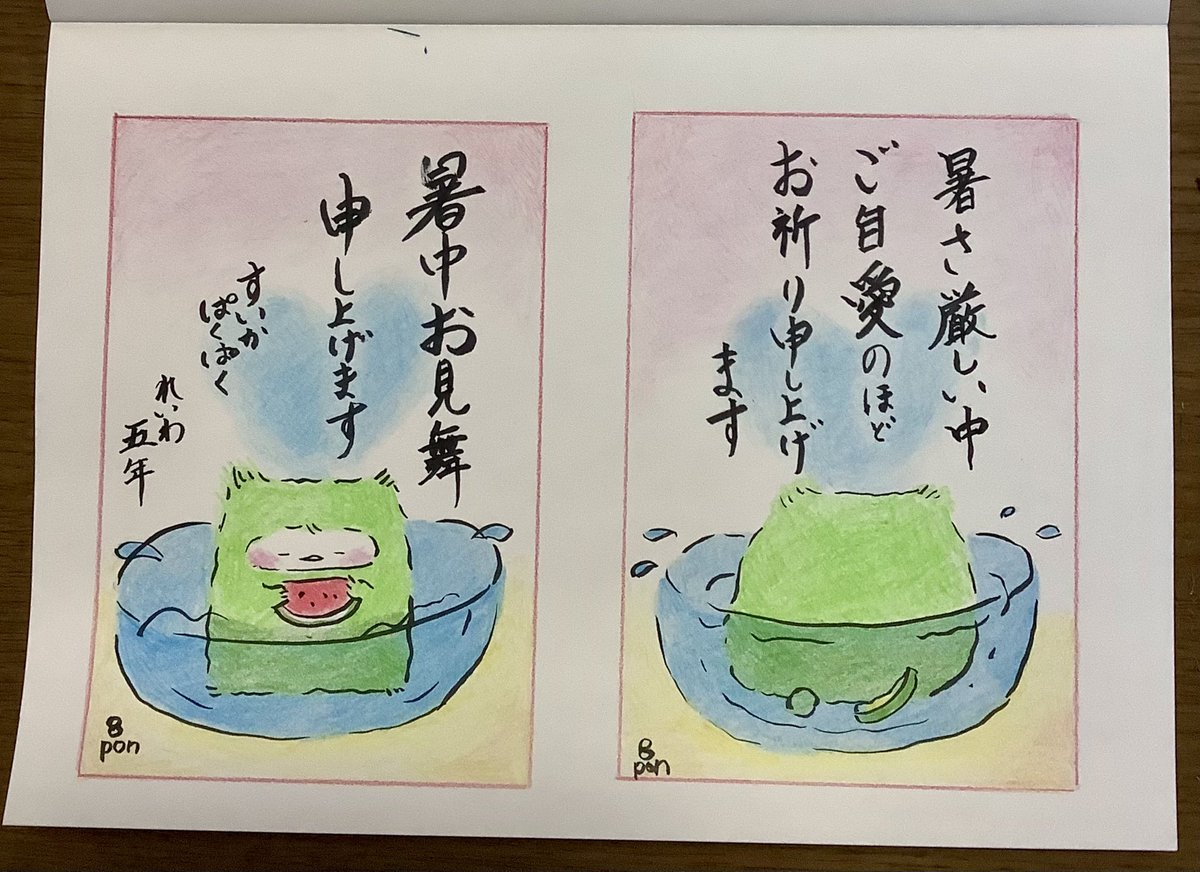 暑中お見舞
申し上げます
すいか
ぱくぱく
れいわ
五年
8
pon
暑さ厳しい中
ご自愛のほど
お祈り申し上げ
ます
8
pon